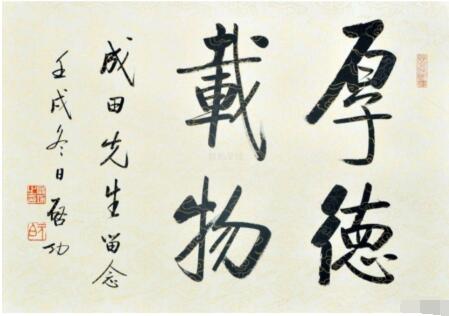 厚德
載物
成田先生留念
壬戌冬日啓功